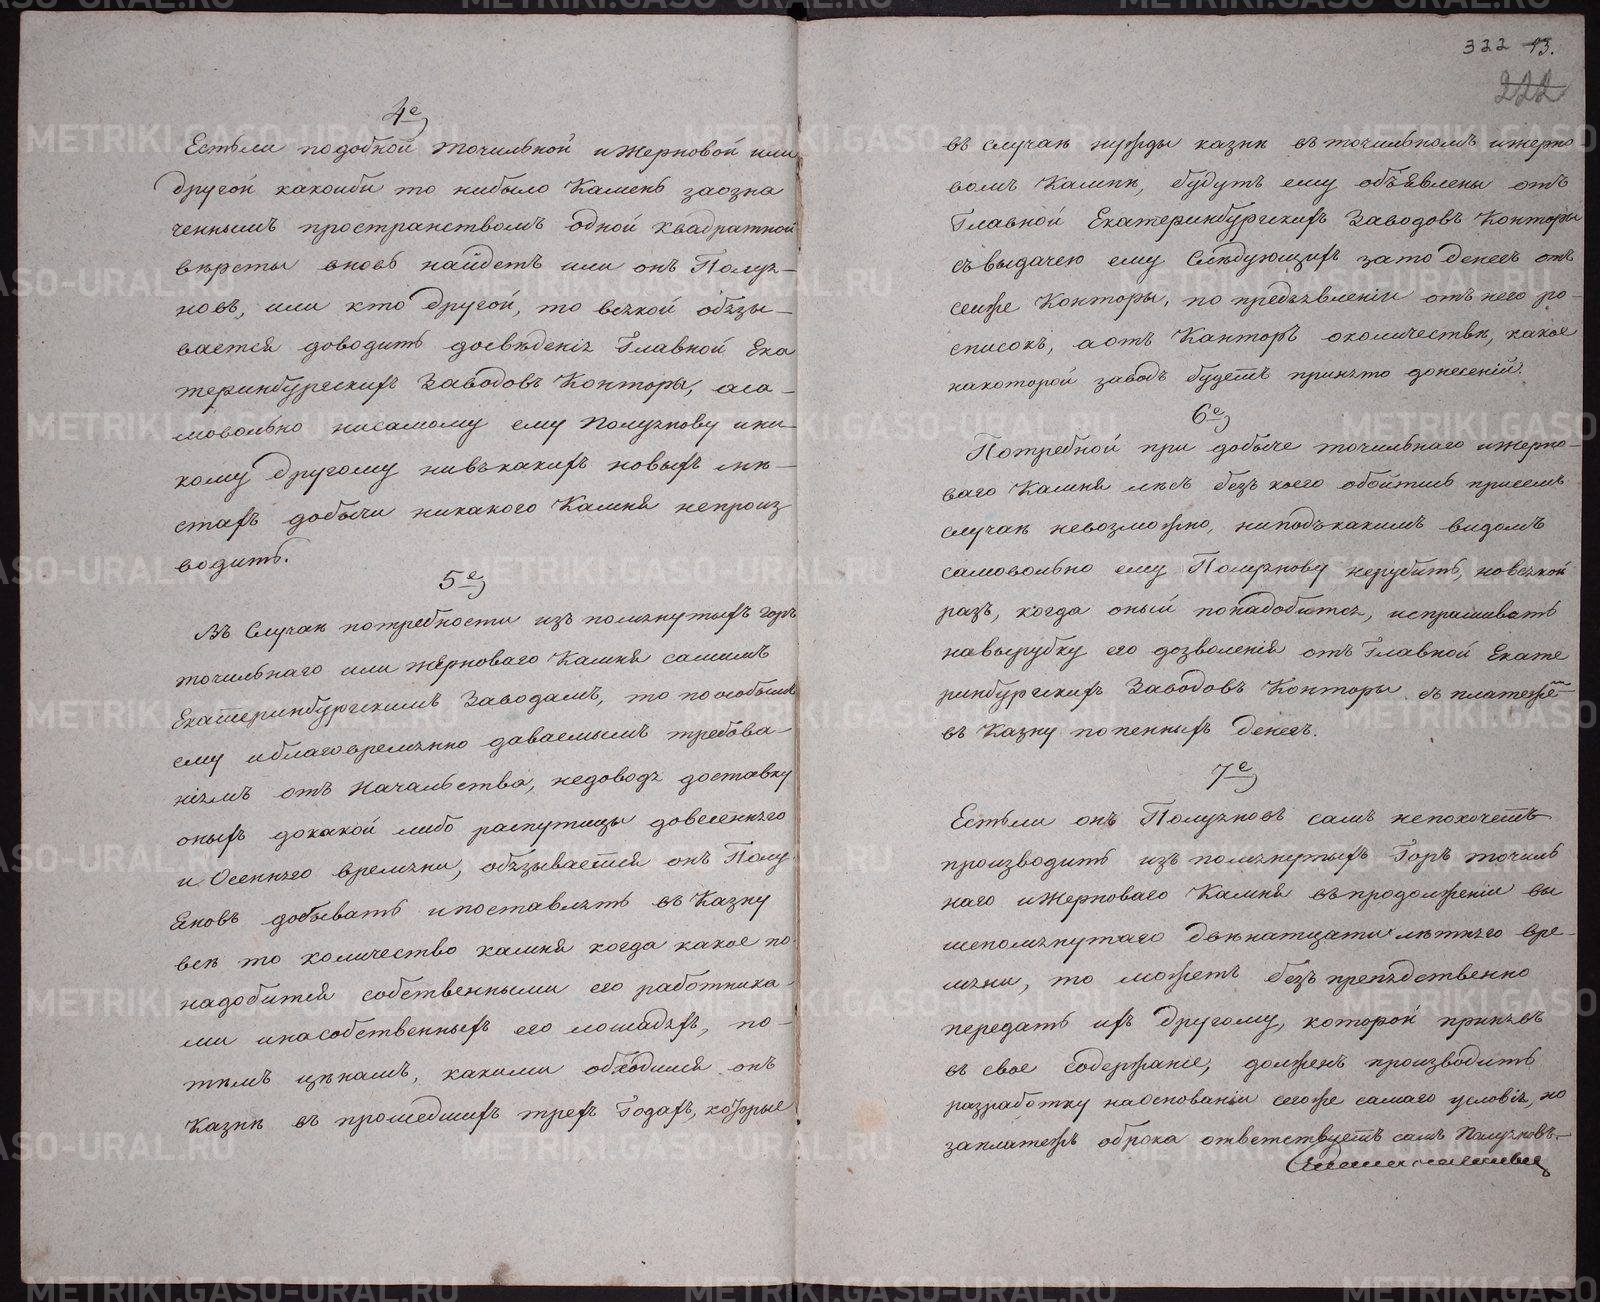 4е
Естьли подобной точильной и жерновой или
другой какоиби то нибыло Камень заозна
ченнымъ пространствомъ одной квадратной
версты вновь найдетъ или онъ Полуя-
новъ, или кто другой, то всякой обязы-
вается доводить досвѣденія Главной Ека
теринбургскихъ Заводовъ Конторы, аса-
мовольно нисамому ему Полуянову ини-
кому другому нивъкакихъ новыхъ мѣ-
стахъ добычи никакого Камня непроиз
водить.
5е
Въ Случаѣ потребности изъ помянутыхъ горъ
точильнаго или жерноваго Камня самимъ
Екатеринбургскимъ Заводамъ, то поособымъ
ему иблаговремянно даваемымъ требова-
ніямъ отъ Начальства, недоводя доставку
оныхъ докакой либо распутицы довесенняго
и Осенняго времяни, обязывается онъ Полу
яновъ добывать ипоставлять въ Казну
все то количество камня когда какое по-
надобится собственными его работника-
ми инасобственныхъ его лошадяхъ, по-
темъ ценамъ, какими обходился онъ
Казнѣ въ прошедшихъ трехъ Годахъ, которые
322 13.
222
въ случаѣ нужды казнѣ въточильномъ ижерно
вомъ Камнѣ, будутъ ему объявлены отъ
Главной Екатеринбургскихъ Заводовъ Конторы
съвыдачею ему Слѣдующихъ зато денегъ отъ
сейже Конторы, по предъявленіи отъ него ро-
списокъ, аотъ Канторъ околичествѣ, какое
накоторой заводъ будетъ принято донесеній.
6е
Потребной при добыче точильнаго ижерно-
ваго Камня лѣсъ безъ коего обойтись присемъ
случаѣ невозможно, ниподъкакимъ видомъ
самовольно ему Полуянову нерубить, новсякой
разъ, когда оный понадобится, испрашивать
навырубку его дозволенія отъ Главной Екате
ринбургскихъ Заводовъ Конторы съ платежемъ
въ Казну попенныхъ денегъ.
7е
Естьли онъ Полуяновъ самъ непохочетъ
производить изъ помянутыхъ Горъ точиль
наго ижерноваго Камня въпродолженіи вы
шепомянутаго двенатцати лѣтняго вре-
мяни, то можетъ безъ препядственно
передать ихъ другому, которой принявъ
въ свое содержаніе, долженъ производить
разработку наоснованіи сегоже самаго условія, но
заплатежъ оброка ответствуетъ самъ Полуяновъ.